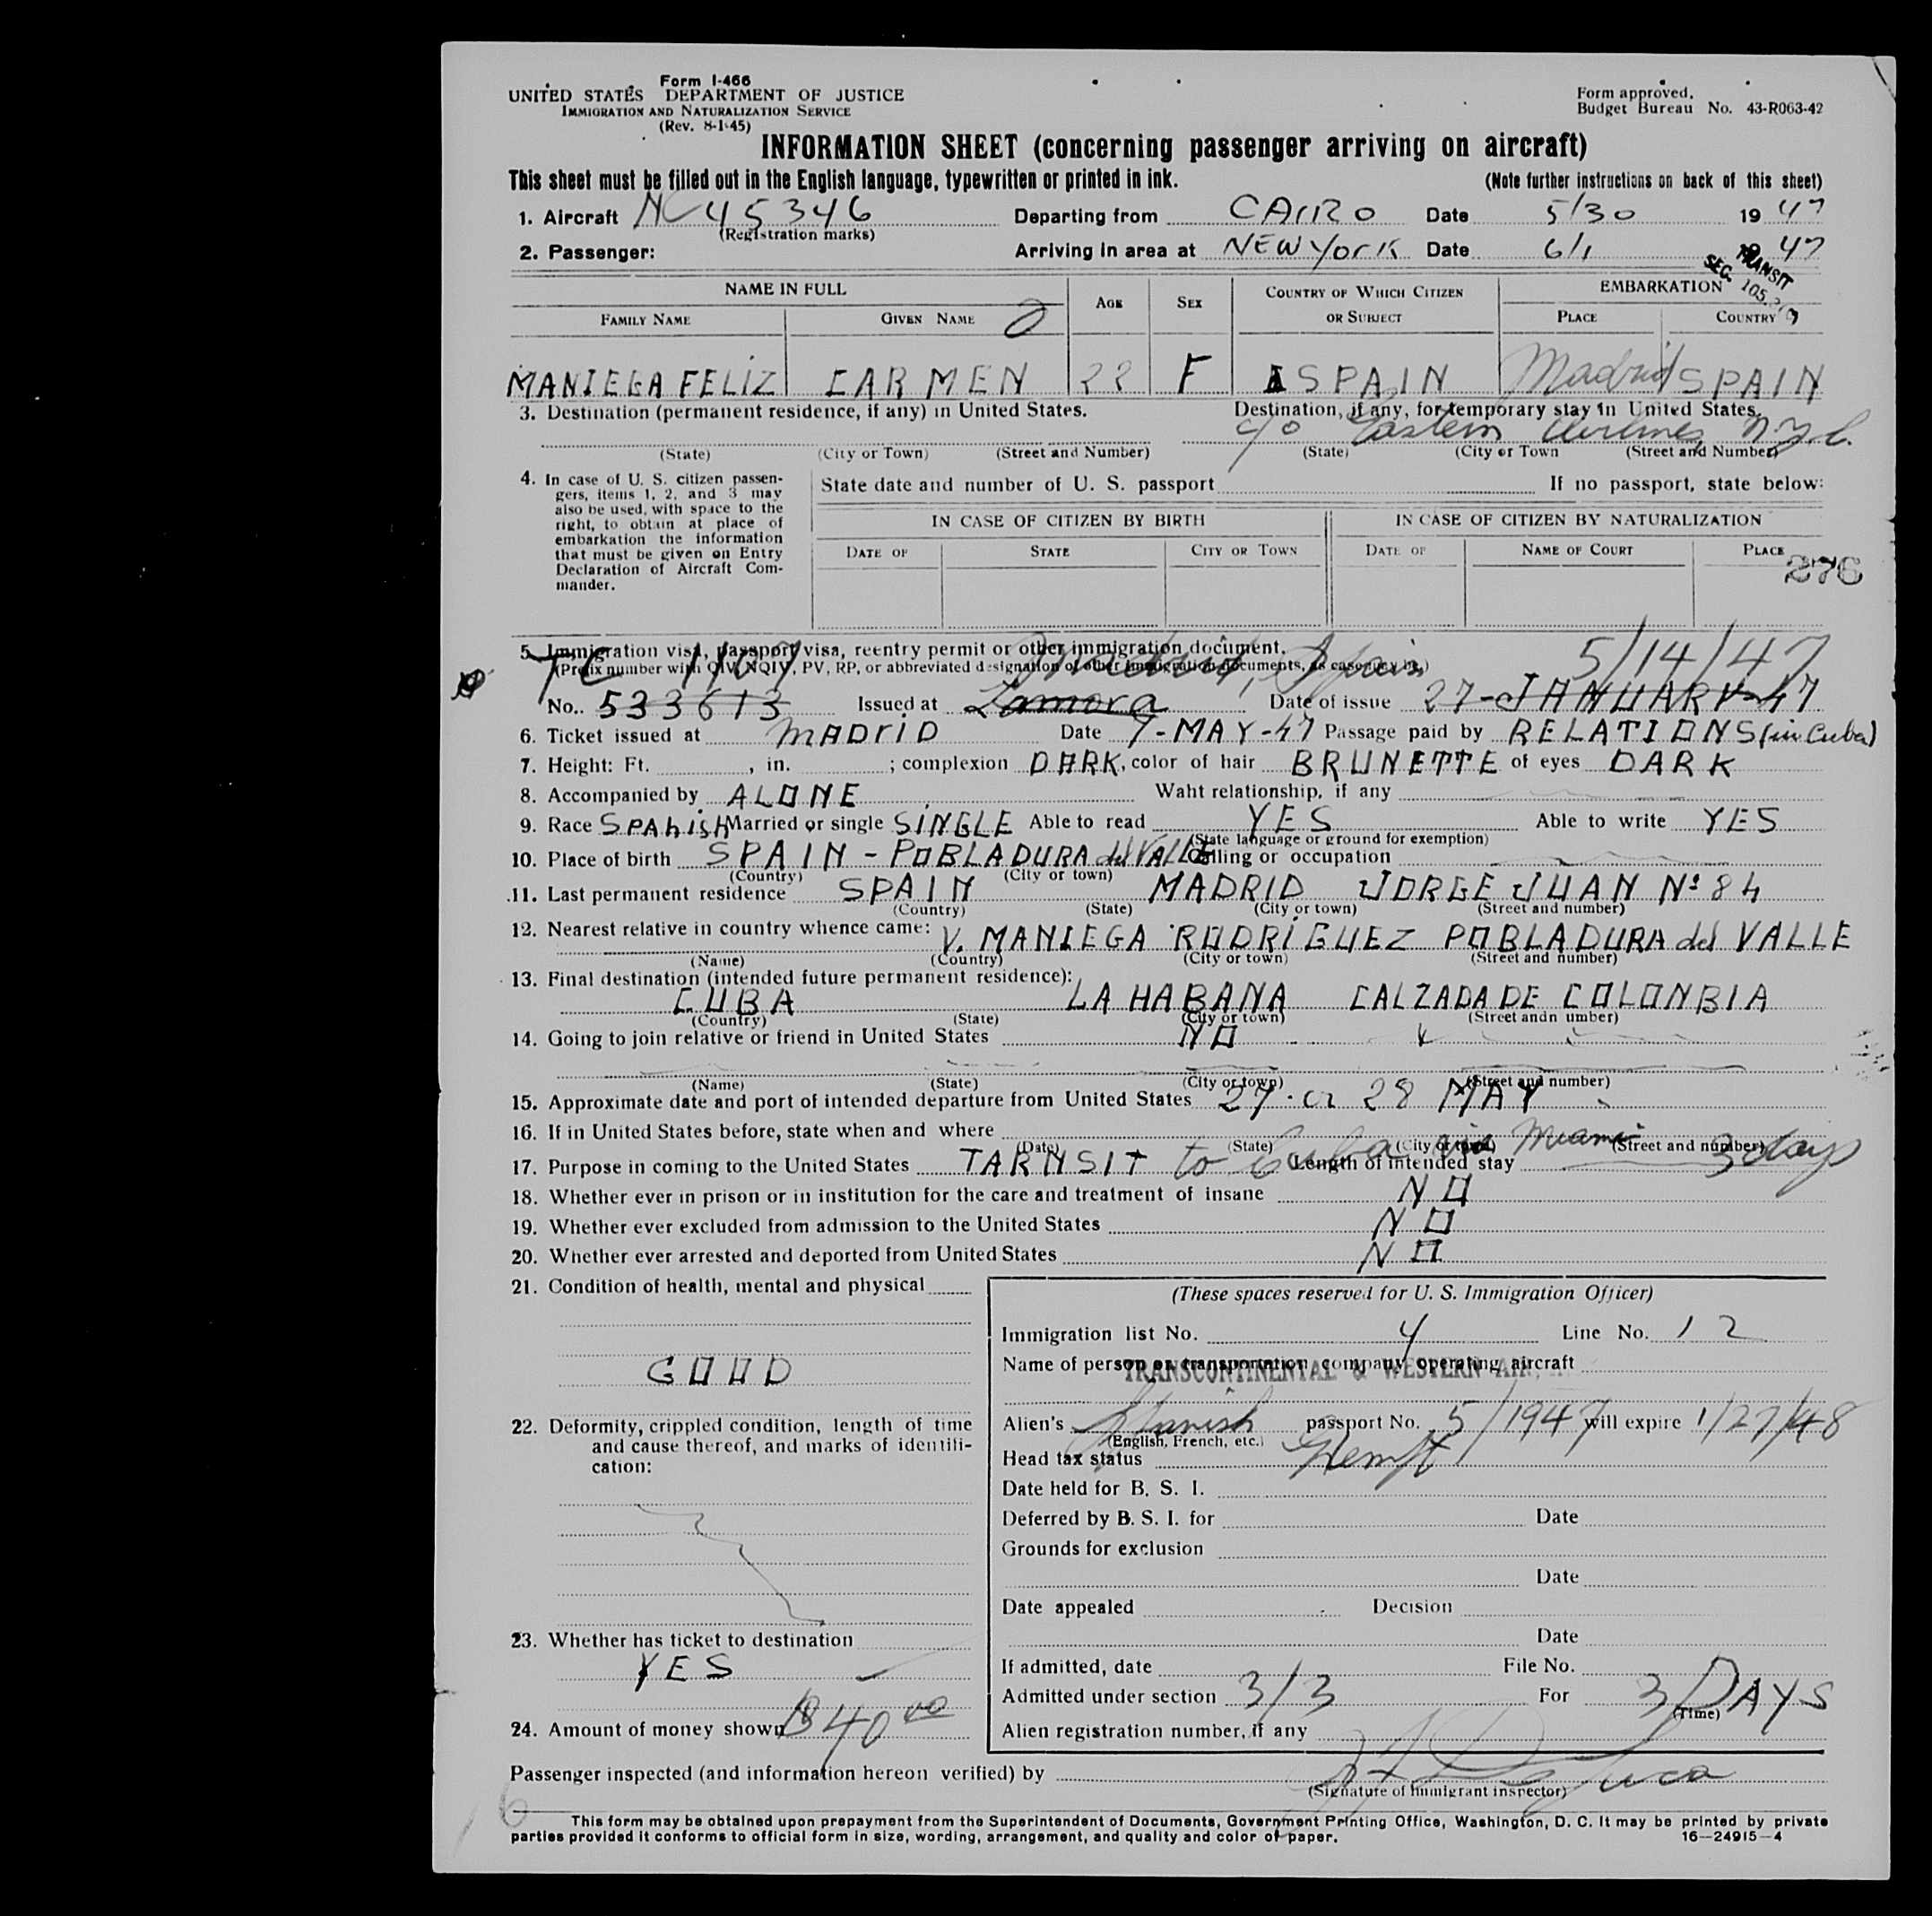 Form I-466
UNITED STATES DEPARTMENT OF JUSTICE
IMMIGRATION AND NATURALIZATION SERVICE
(Rev. 8-1-45)
Form approved.
Budget Bureau No. 43-R063-42
INFORMATION SHEET (concerning passenger arriving on aircraft)
This sheet must be filled out in the English language, typewritten or printed in ink. (Note further instructions on back of this sheet)
1. Aircraft NC 45346 Departing from CAIRO Date 5/30 1947
(Registration marks)
2. Passenger: Arriving in area at NEW YORK Date 6/1 1947
SEC. TRANSIT
NAME IN FULL AGE SEX COUNTRY OF WHICH CITIZEN OR SUBJECT EMBARKATION
FAMILY NAME GIVEN NAME PLACE COUNTRY
MANIEGA FELIZ CARMEN 22 F SPAIN Madrid SPAIN
3. Destination (permanent residence, if any) in United States. Destination, if any, for temporary stay in United States.
c/o Eastern Airlines N.Y.C.
(State) (City or Town) (Street and Number) (State) (City or Town (Street and Number)
4. In case of U. S. citizen passen-
gers, items 1, 2, and 3 may
also be used, with space to the
right, to obtain at place of
embarkation the information
that must be given on Entry
Declaration of Aircraft Com-
mander.
State date and number of U. S. passport If no passport, state below:
IN CASE OF CITIZEN BY BIRTH IN CASE OF CITIZEN BY NATURALIZATION
DATE OF STATE CITY OR TOWN DATE OF NAME OF COURT PLACE
276
5. Immigration visa, passport visa, reentry permit or other immigration document.
(Prefix number with QIV, NQIV, PV, RP, or abbreviated designation of other immigration documents, as case may be.)
TC 1107 Madrid, Spain 5/14/47
No. 533613 Issued at Zamora Date of issue 27-JANUARY-47
6. Ticket issued at MADRID Date 7-MAY-47 Passage paid by RELATIONS (in Cuba)
7. Height: Ft. , in. ; complexion DARK, color of hair BRUNETTE of eyes DARK
8. Accompanied by ALONE Waht relationship, if any
9. Race SPAhiSH Married or single SINGLE Able to read YES Able to write YES
(State language or ground for exemption)
10. Place of birth SPAIN - POBLADURA del VALLE Calling or occupation
(Country) (City or town)
11. Last permanent residence SPAIN MADRID JORGE JUAN Nº 84
(Country) (State) (City or town) (Street and number)
12. Nearest relative in country whence came: V. MANIEGA RODRÍGUEZ POBLADURA del VALLE
(Name) (Country) (City or town) (Street and number)
13. Final destination (intended future permanent residence):
CUBA LA HABANA CALZADA DE COLONBIA
(Country) (State) (City or town) (Street andn umber)
14. Going to join relative or friend in United States NO
(Name) (State) (City or town) (Street and number)
15. Approximate date and port of intended departure from United States 27 - or 28 MAY
16. If in United States before, state when and where
(Date) (State) (City or town) (Street and number)
17. Purpose in coming to the United States TARNSIT to Cuba via Miami Length of intended stay 3 days
18. Whether ever in prison or in institution for the care and treatment of insane NO
19. Whether ever excluded from admission to the United States NO
20. Whether ever arrested and deported from United States NO
21. Condition of health, mental and physical
GOOD
22. Deformity, crippled condition, length of time
and cause thereof, and marks of identifi-
cation:
23. Whether has ticket to destination
YES
24. Amount of money shown $40.00
(These spaces reserved for U. S. Immigration Officer)
Immigration list No. 4 Line No. 12
Name of person or transportation company operating aircraft
TRANSCONTINENTAL & WESTERN AIR,
Alien's Spanish passport No. 5/1947 will expire 1/27/48
(English, French, etc.)
Head tax status Exempt
Date held for B. S. I.
Deferred by B. S. I. for Date
Grounds for exclusion
Date
Date appealed Decision
Date
If admitted, date File No.
Admitted under section 3/3 For 3 DAYS
(Time)
Alien registration number, if any
Passenger inspected (and information hereon verified) by
(Signature of immigrant inspector)
This form may be obtained upon prepayment from the Superintendent of Documents, Government Printing Office, Washington, D. C. It may be printed by private
parties provided it conforms to official form in size, wording, arrangement, and quality and color of paper. 16—24915-4